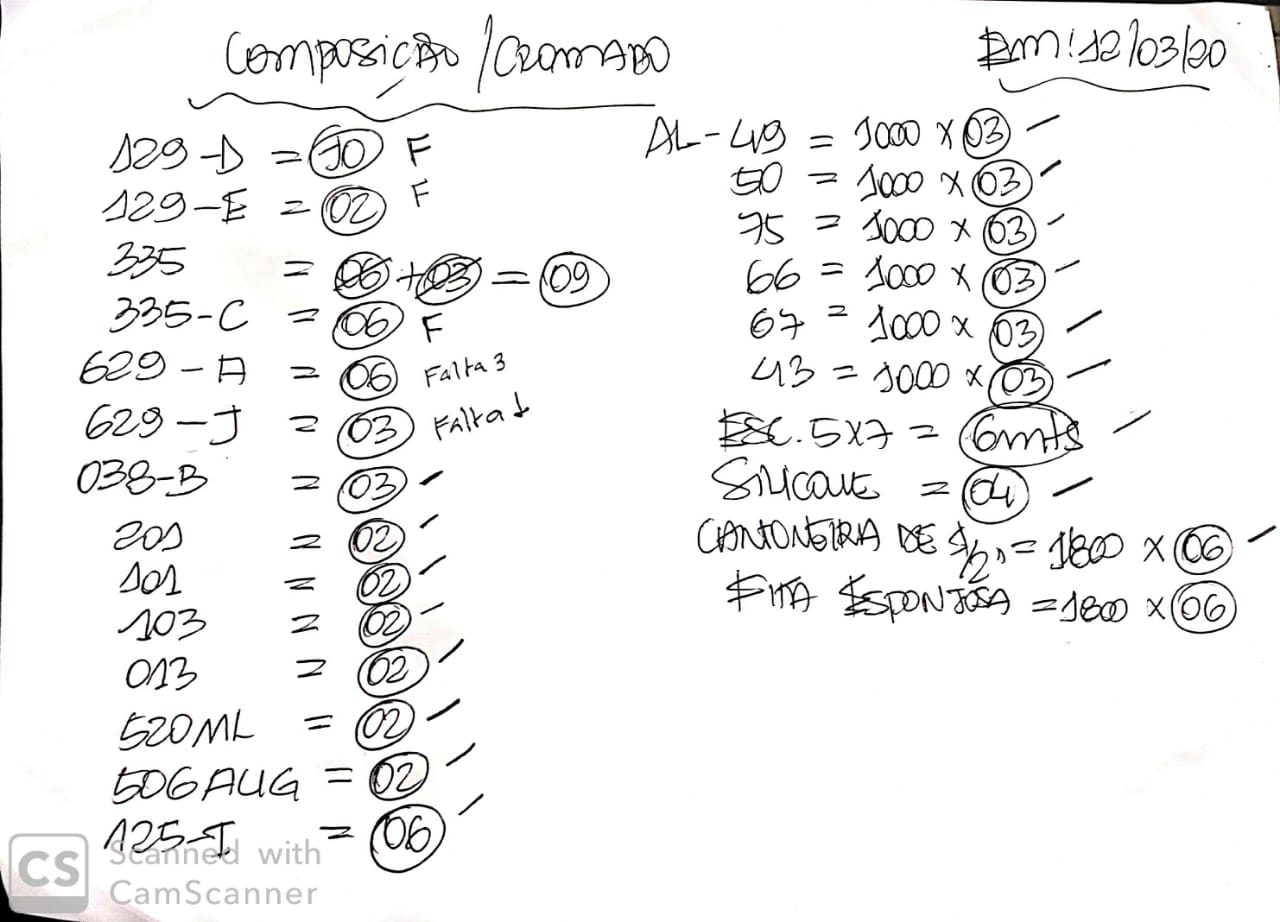 COMPOSIÇÃO / CROMADO
EM: 12/03/20
129-D = 10 F
129-E = 02 F
335 = 06 + 03 = 09
335-C = 06 F
629-A = 06 Falta 3
629-J = 03 Falta 1
038-B = 03
201 = 02
101 = 02
103 = 02
013 = 02
520ML = 02
506AUG = 02
125-I = 06
AL-49 = 1000 X 03
50 = 1000 X 03
75 = 1000 X 03
66 = 1000 X 03
67 = 1000 X 03
43 = 1000 X 03
ESC. 5X7 = 6mts
SILICONE = 04
CANTONEIRA DE 1/2" = 1800 X 06
FITA ESPONJOSA = 1800 X 06
CS Scanned with
CamScanner